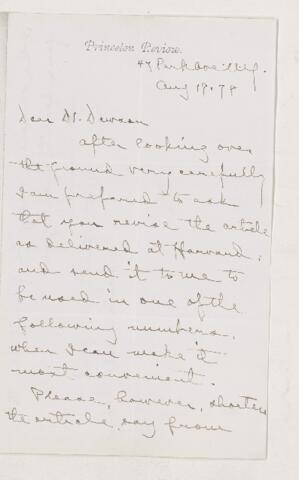 Princeton Review.
47 Park Ave N.Y.
Aug 19. 78
Dear Dr. Dawson
After looking over
the ground very carefully
I am prepared to ask
that you revise the article
as delivered at Harvard,
and send it to me to
be used in one of the
following numbers,
when I can make it
most convenient.
Please, however, shorten
the article, say from